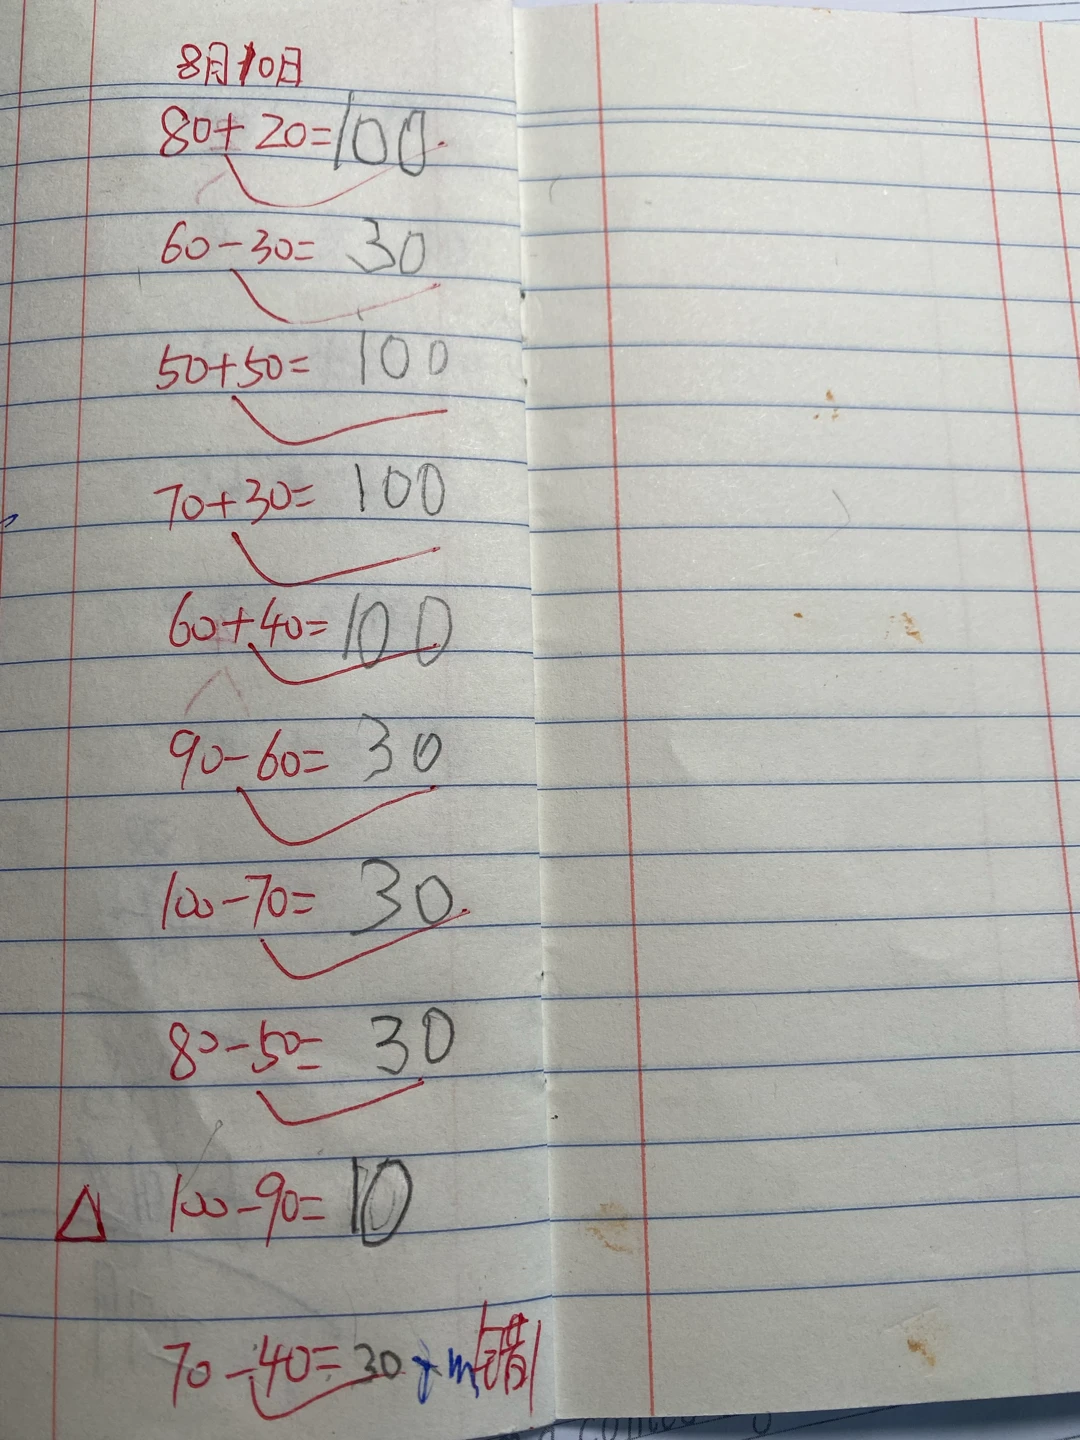 8月10日
80+20=100
60-30=30
50+50=100
70+30=100
60+40=100
90-60=30
100-70=30
80-50=30
△ 100-90=10
70-40=30 错